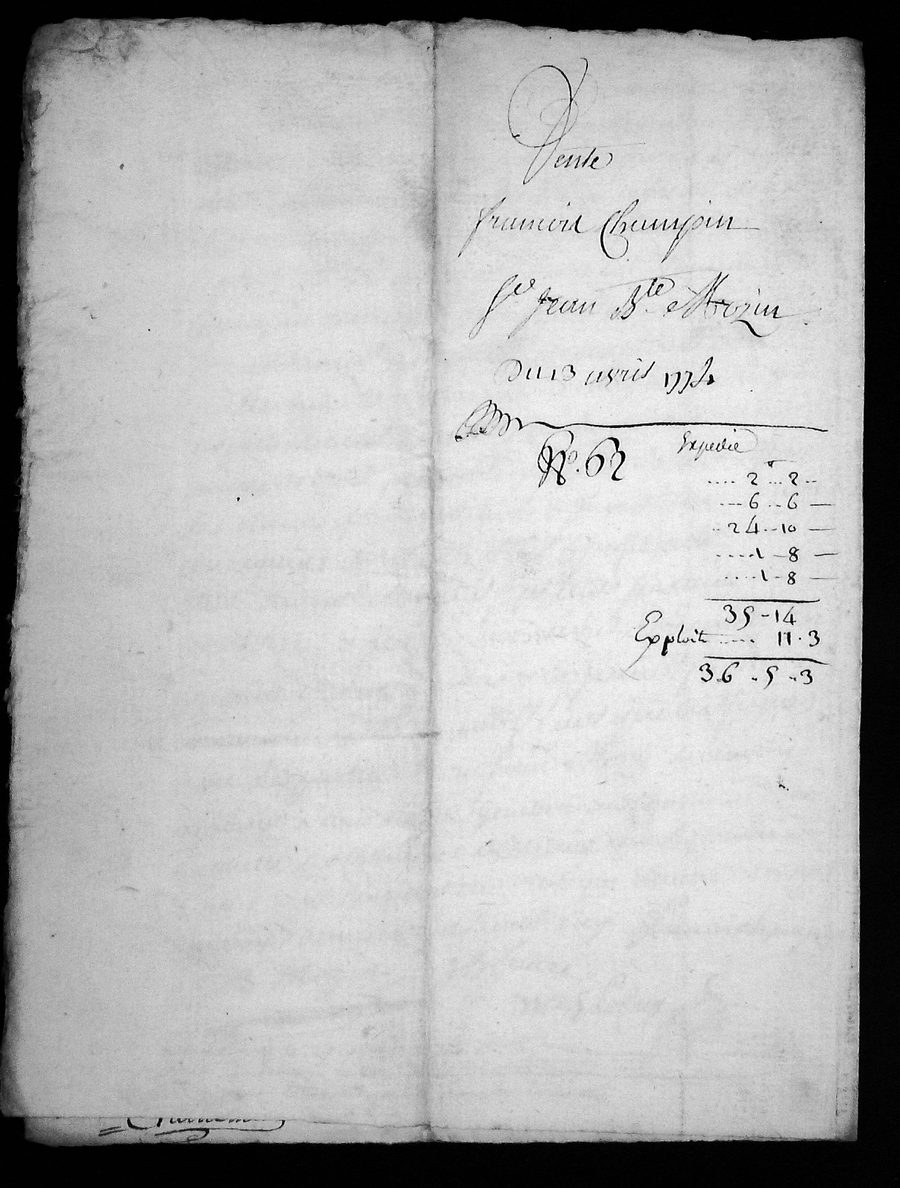 Vente
francois Champoin
Sr. Jean Bte. Mozin
Du 13 avril 1774
No. 62 Expedié
2 .. 2 ..
6 .. 6 —
24 .. 10 —
1 - 8 —
1 - 8 —
35 - 14
Exploit .... 11 . 3
36 .. 5 .. 3